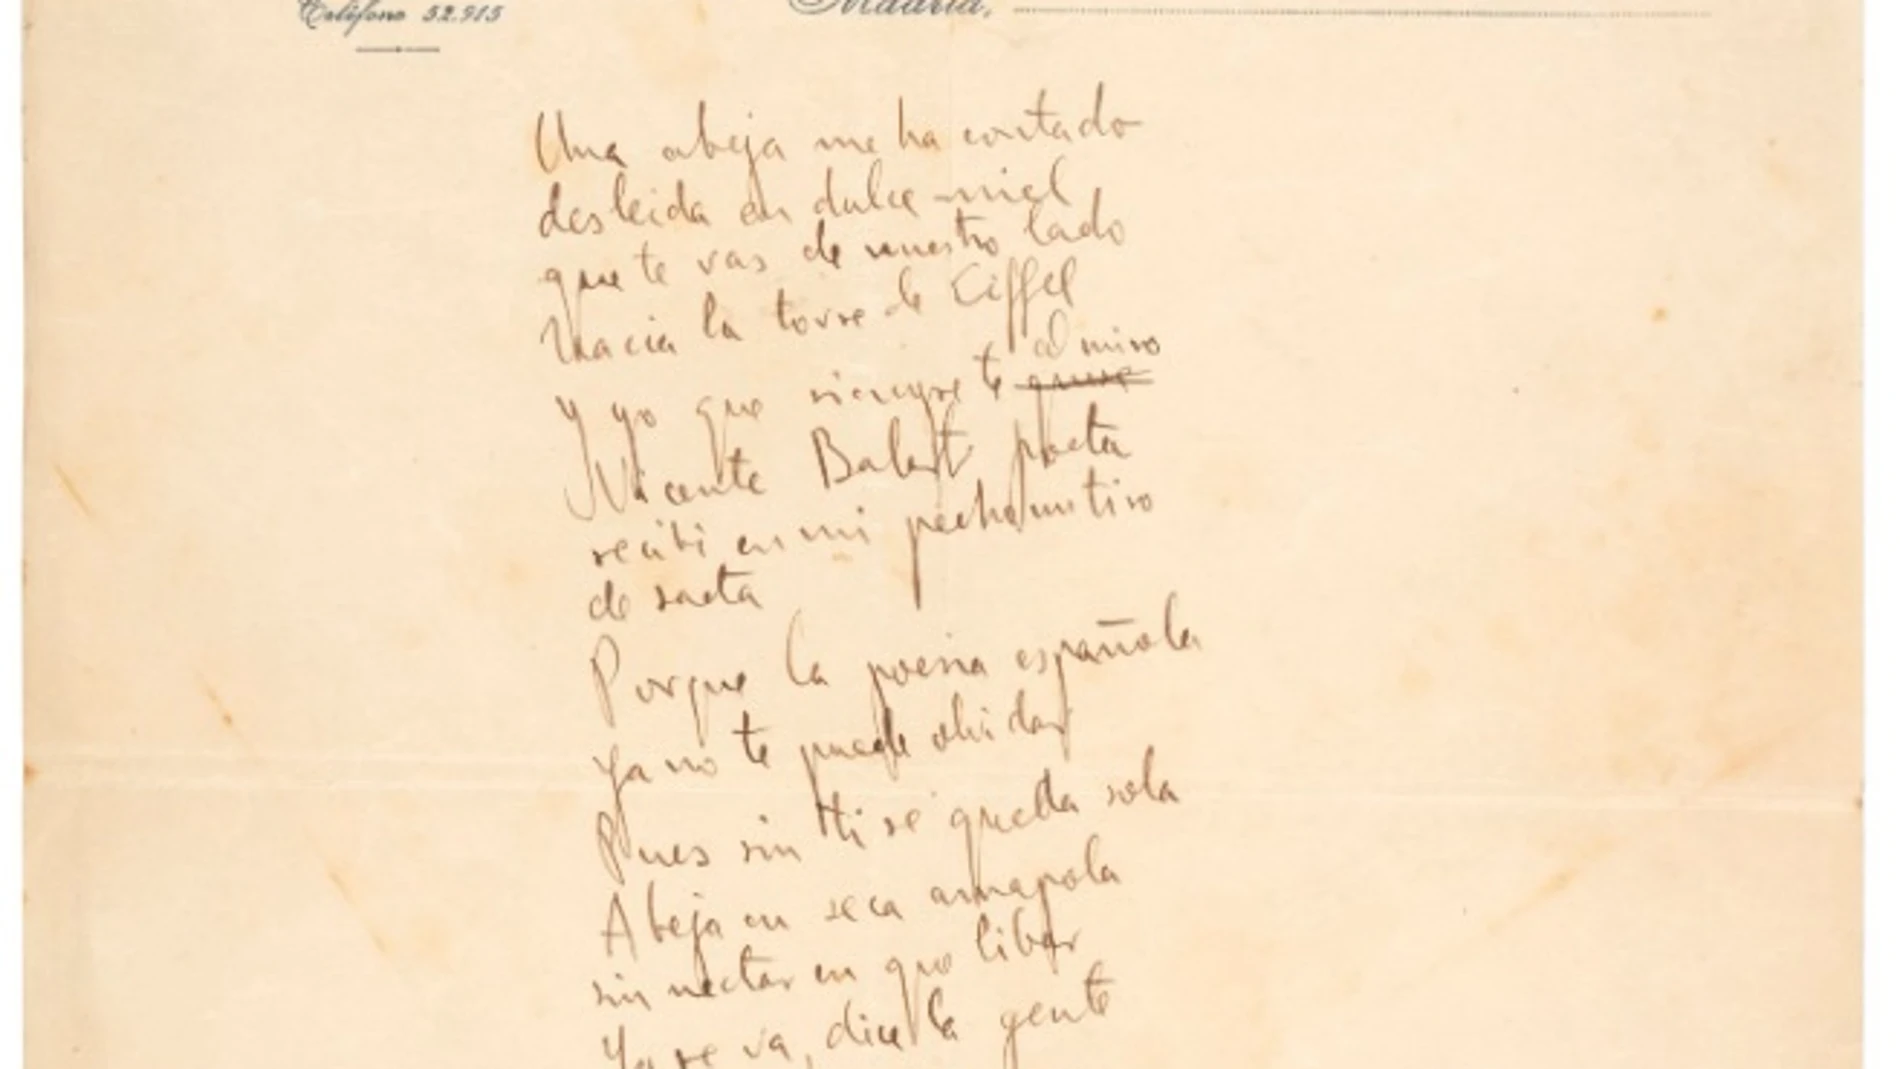 Teléfono 52.915
Madrid,
Una abeja me ha contado
desleida en dulce miel
que te vas de nuestro lado
hacia la torre de Eiffel
y yo que siempre te admiro
quise
Vicente Balart poeta
recibi en mi pecho un tiro
de saeta
Porque la poesia española
ya no te puede olvidar
Pues sin ti se queda sola
Abeja en seca amapola
sin nectar en que libar
Ya se va, dice la gente